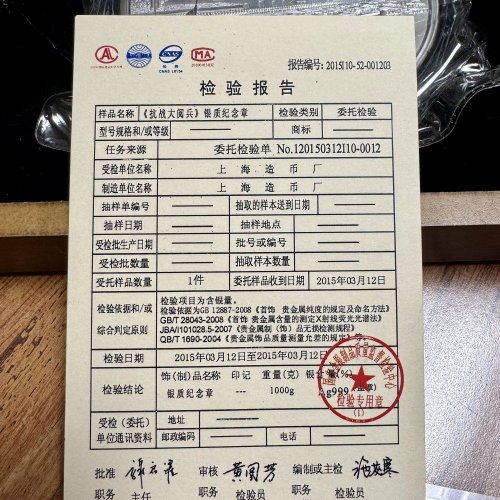 报告编号: 2015I10-52-001203
检验报告
样品名称 《抗战大阅兵》银质纪念章 检验类别 委托检验
型号规格和/或等级 —— 商标 ——
任务来源 委托检验单 No.120150312I10-0012
受检单位名称 上海造币厂
制造单位名称 上海造币厂
抽样单编号 —— 抽取的样本送到日期 ——
抽样日期 —— 抽样地点 ——
受检批生产日期 —— 批号或编号 ——
受检批数量 —— 抽取样本数量 ——
受托样品数量 1件 委托样品收到日期 2015年03月12日
检验依据和/或综合判定原则
检验项目为含银量。
检验依据为GB 12887-2008《首饰 贵金属纯度的规定及命名方法》
GB/T 28043-2008《首饰 贵金属含量的测定X射线荧光光谱法》
JBA/I101028.5-2007《贵金属制（饰）品无损检测规程》
QB/T 1690-2004《贵金属饰品质量测量允差的规定》
检验日期 2015年03月12日至2015年03月12日
检验结论
饰(制)品名称 印记 重量(克) 银含量(‰)
银质纪念章 --- 1000g Ag999
检验专用章
(1)
受检（委托）单位通讯资料
地址 ——
邮政编码 —— 电话 ——
批准 审核 黄国芳 编制或主检
职务 主任 职务 检验员 职务 检验员